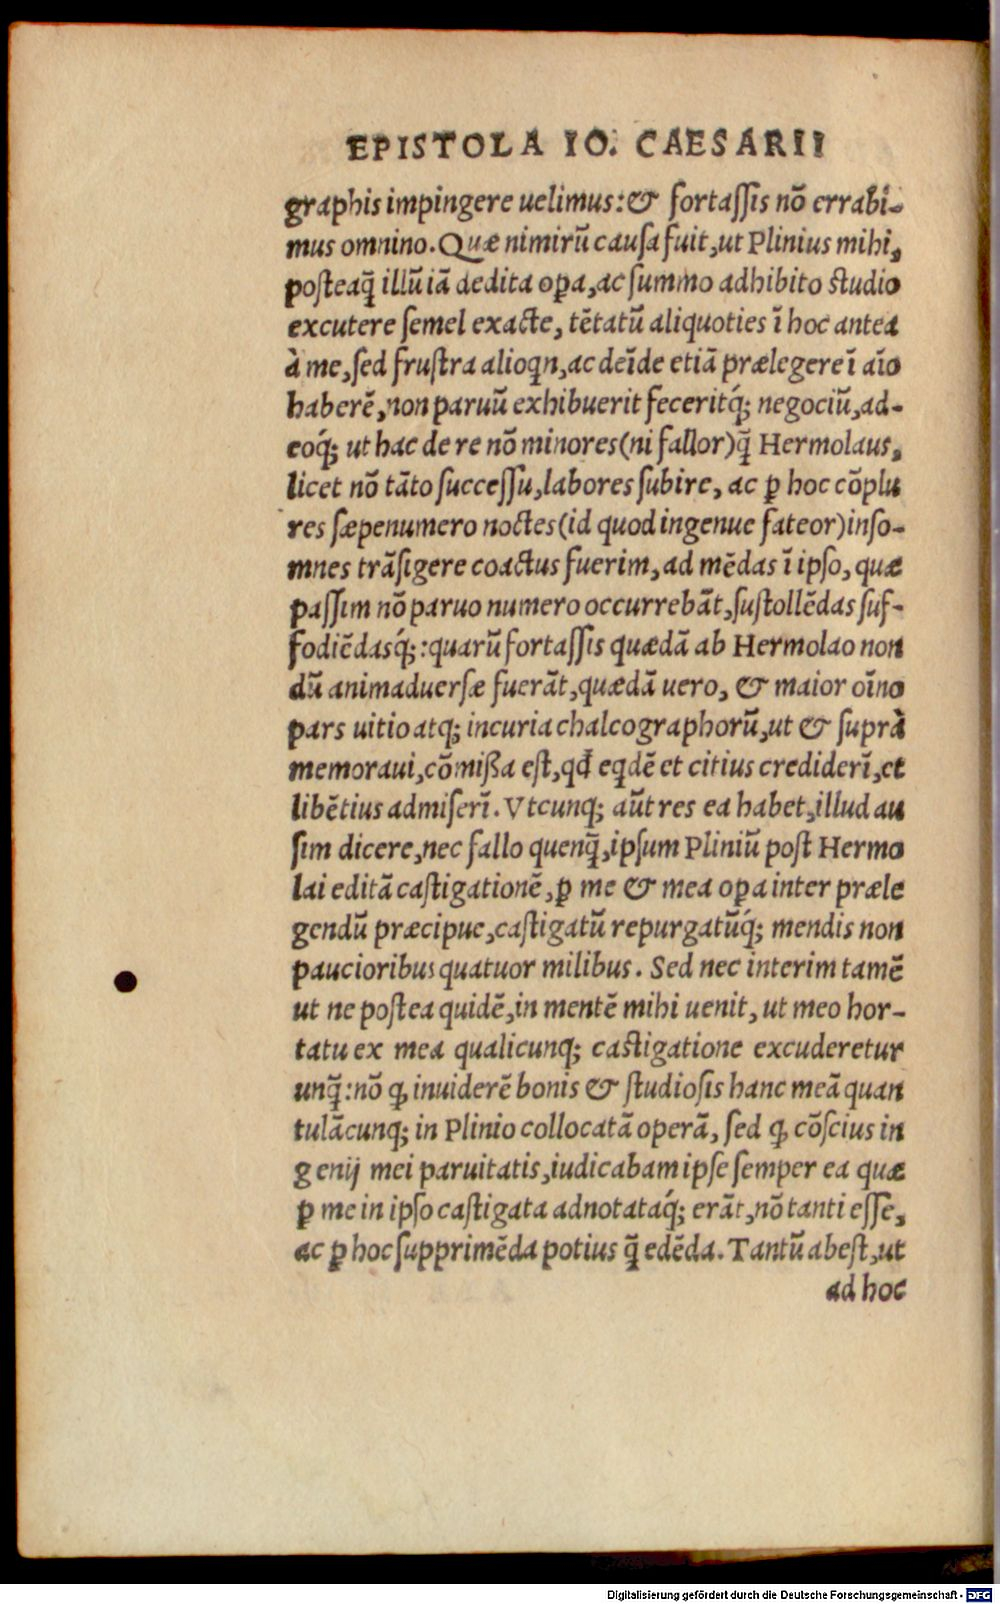 EPISTOLA IO. CAESARII
graphis impingere uelimus: & fortaſſis nõ errabi-
mus omnino. Quæ nimirũ cauſa fuit, ut Plinius mihi,
poſteaq̃ illũ iã dedita oꝑa, ac ſummo adhibito ſtudio
excutere ſemel exacte, tẽtatũ aliquoties ĩ hoc antea
à me, ſed fruſtra alioqn, ac deĩde etiã prælegere ĩ aĩo
haberẽ, non paruũ exhibuerit feceritq́; negociũ, ad-
eoq́; ut hac de re nõ minores (ni fallor) q̃ Hermolaus,
licet nõ tãto ſucceſſu, labores ſubire, ac ꝑ hoc cõplu
res ſæpenumero noctes (id quod ingenue fateor) inſo-
mnes trãſigere coactus fuerim, ad mẽdas ĩ ipſo, quæ
paſſim nõ paruo numero occurrebãt, ſuſtollẽdas ſuf-
fodiẽdasq́;: quarũ fortaſſis quædã ab Hermolao non
dũ animaduerſæ fuerãt, quædã uero, & maior oĩno
pars uitio atq; incuria chalcographorũ, ut & ſuprà
memoraui, cõmiſſa eſt, qđ eqdẽ et citius crediderĩ, et
libẽtius admiſerĩ. Vtcunq; aũt res ea habet, illud au
ſim dicere, nec fallo quenq̃, ipſum Pliniũ poſt Hermo
lai editã caſtigationẽ, ꝑ me & mea oꝑa inter præle
gendũ præcipue, caſtigatũ repurgatũq́; mendis non
paucioribus quatuor milibus. Sed nec interim tamẽ
ut ne poſtea quidẽ, in mentẽ mihi uenit, ut meo hor-
tatu ex mea qualicunq; caſtigatione excuderetur
unq̃: nõ ꝙ inuiderẽ bonis & ſtudioſis hanc meã quan
tulãcunq; in Plinio collocatã operã, ſed ꝙ cõſcius in
genij mei paruitatis, iudicabam ipſe ſemper ea quæ
ꝑ me in ipſo caſtigata adnotataq́; erãt, nõ tanti eſſe,
ac ꝑ hoc ſupprimẽda potius q̃ edẽda. Tantũ abeſt, ut
ad hoc
Digitalisierung gefördert durch die Deutsche Forschungsgemeinschaft - DFG